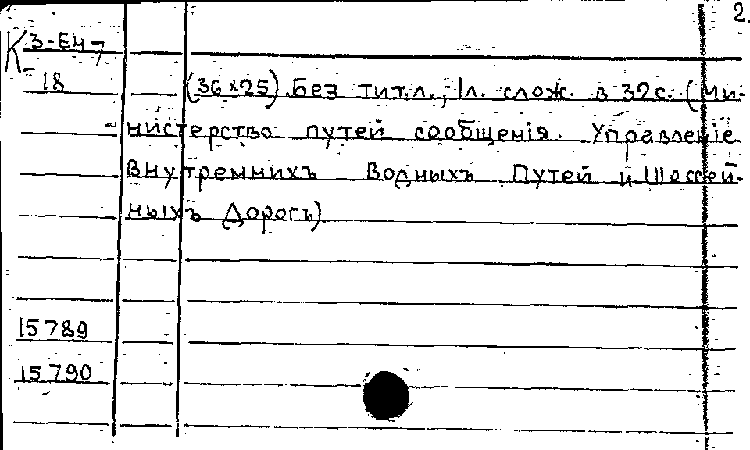 2.
К 3-Е4-7
18
(36×25). Без тит.л., 1л. слож. в 32с. (Ми-
нистерство путей сообщенія. Управленіе
Внутреннихъ Водныхъ Путей и Шоссей-
ныхъ Дорогъ)
15789
15790